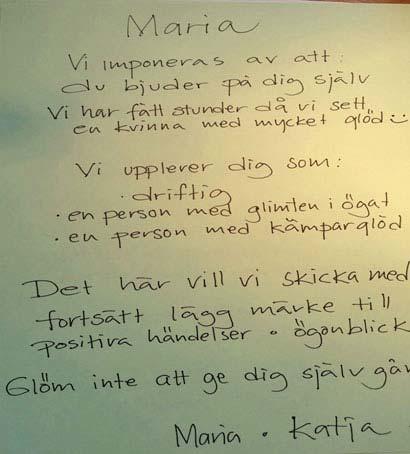 Maria
Vi imponeras av att:
du bjuder på dig själv
Vi har fått stunder då vi sett
en kvinna med mycket glöd :)
Vi upplever dig som:
· driftig
· en person med glimten i ögat
· en person med kämparglöd
Det här vill vi skicka med
fortsätt lägg märke till
positiva händelser · ögonblick
Glöm inte att ge dig själv
Maria · Katja